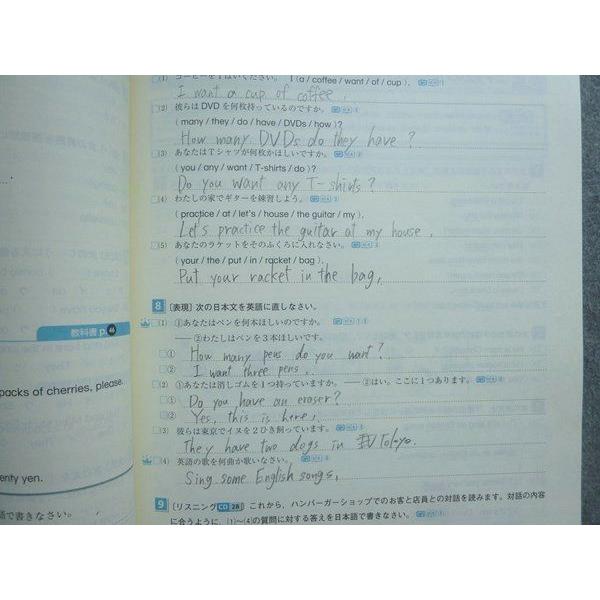 (1) コーヒーを1ぱいください。 I (a / coffee / want / of / cup).
I want a cup of coffee.
(2) 彼らはDVDを何枚持っているのですか。
(many / they / do / have / DVDs / how)?
How many DVDs do they have?
(3) あなたはTシャツが何枚かほしいですか。
(you / any / want / T-shirts / do)?
Do you want any T-shirts?
(4) わたしの家でギターを練習しよう。
(practice / at / let's / house / the guitar / my).
Let's practice the guitar at my house.
(5) あなたのラケットをそのふくろに入れなさい。
(your / the / put / in / racket / bag).
Put your racket in the bag.
8 [表現] 次の日本文を英語に直しなさい。
(1) ①あなたはペンを何本ほしいのですか。
── ②わたしはペンを3本ほしいです。
① How many pens do you want?
② I want three pens.
(2) ①あなたは消しゴムを1つ持っていますか。── ②はい。ここに1つあります。
① Do you have an eraser?
② Yes, this is here.
(3) 彼らは東京でイヌを2ひき飼っています。
They have two dogs in Tokyo.
(4) 英語の歌を何曲か歌いなさい。
Sing some English songs.
9 [リスニング CD 28] これから、ハンバーガーショップでのお客と店員との対話を読みます。対話の内容
に合うように、(1)～(4)の質問に対する答えを日本語で書きなさい。
教科書 p.46
packs of cherries, please.
enty yen.
語で書きなさい。